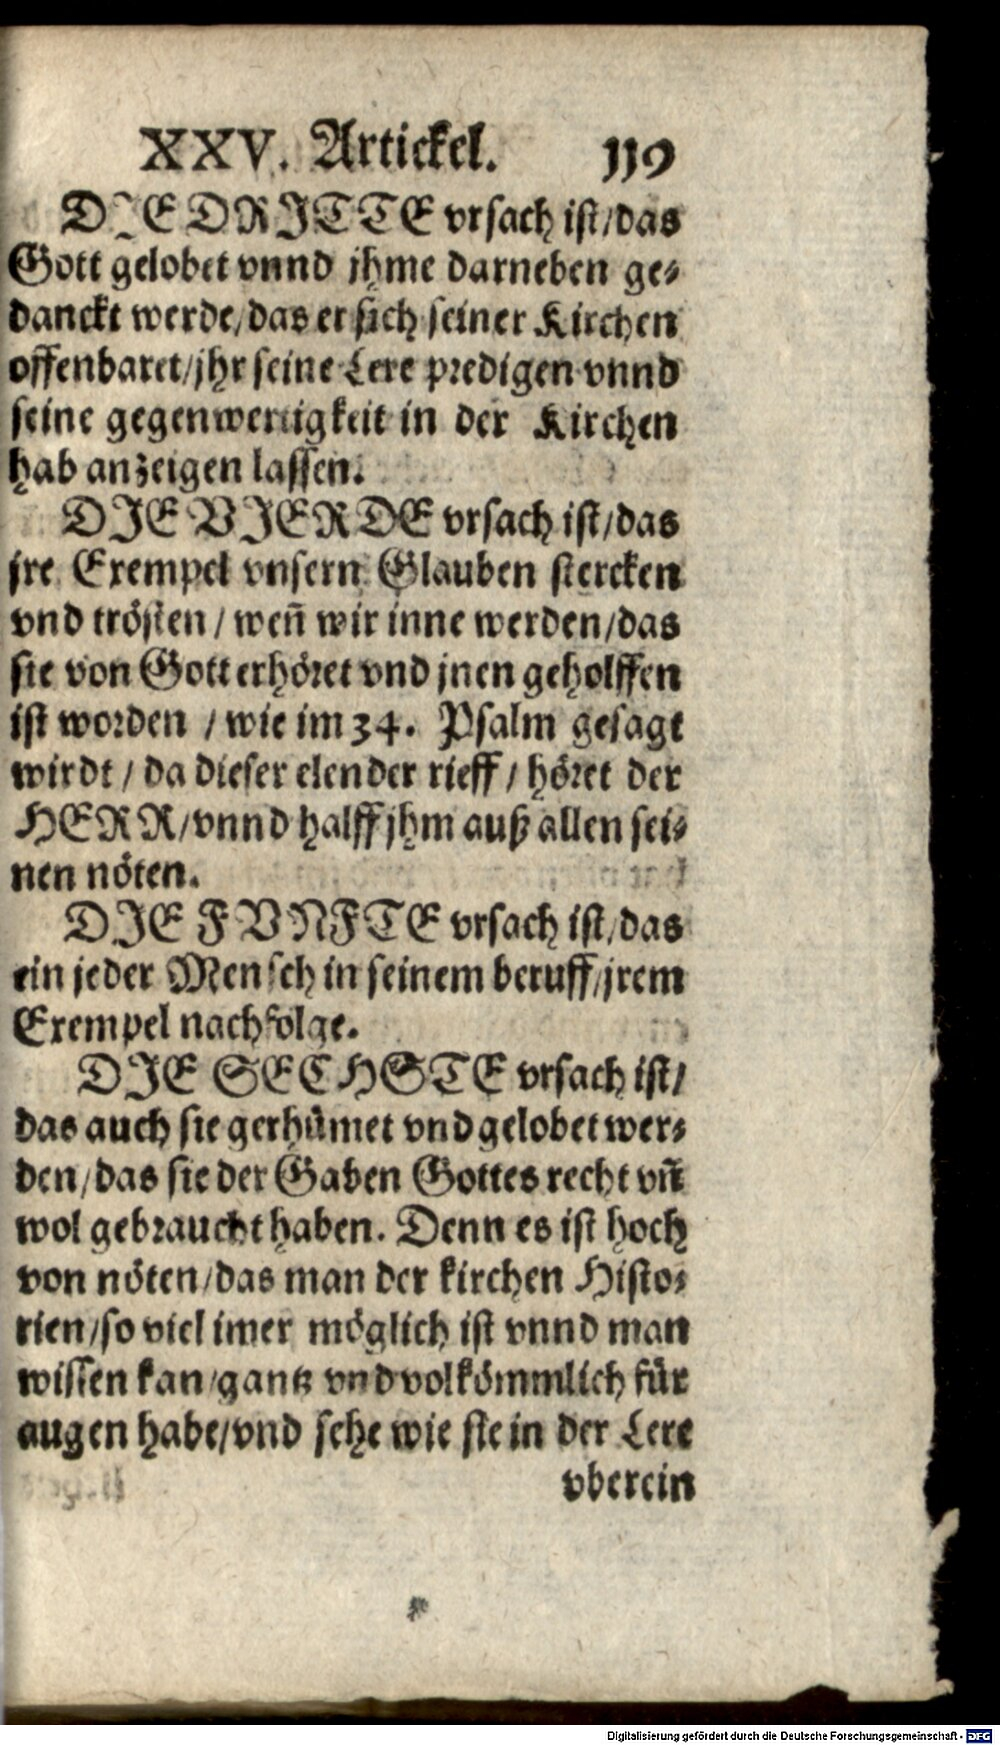 XXV. Artickel. 119
DIE DRITTE vrsach ist/das
Gott gelobet vnnd jhme darneben ge⸗
danckt werde/das er sich seiner Kirchen
offenbaret/jhr seine Lere predigen vnnd
seine gegenwertigkeit in der Kirchen
hab anzeigen lassen.
DIE VIERDE vrsach ist/das
jre Exempel vnsern Glauben stercken
vnd trösten/wen̄ wir inne werden/das
sie von Gott erhöret vnd jnen geholffen
ist worden /wie im 34. Psalm gesagt
wirdt/da dieser elender rieff/höret der
HERR/vnnd halff jhm auß allen sei⸗
nen nöten.
DIE FVNFTE vrsach ist/das
ein jeder Mensch in seinem beruff/jrem
Exempel nachfolge.
DIE SECHSTE vrsach ist/
das auch sie gerhümet vnd gelobet wer⸗
den/das sie der Gaben Gottes recht vn̄
wol gebraucht haben. Denn es ist hoch
von nöten/das man der kirchen Histo⸗
rien/so viel imer möglich ist vnnd man
wissen kan/gantz vnd volkömmlich für
augen habe/vnd sehe wie sie in der Lere
vberein
Digitalisierung gefördert durch die Deutsche Forschungsgemeinschaft - DFG